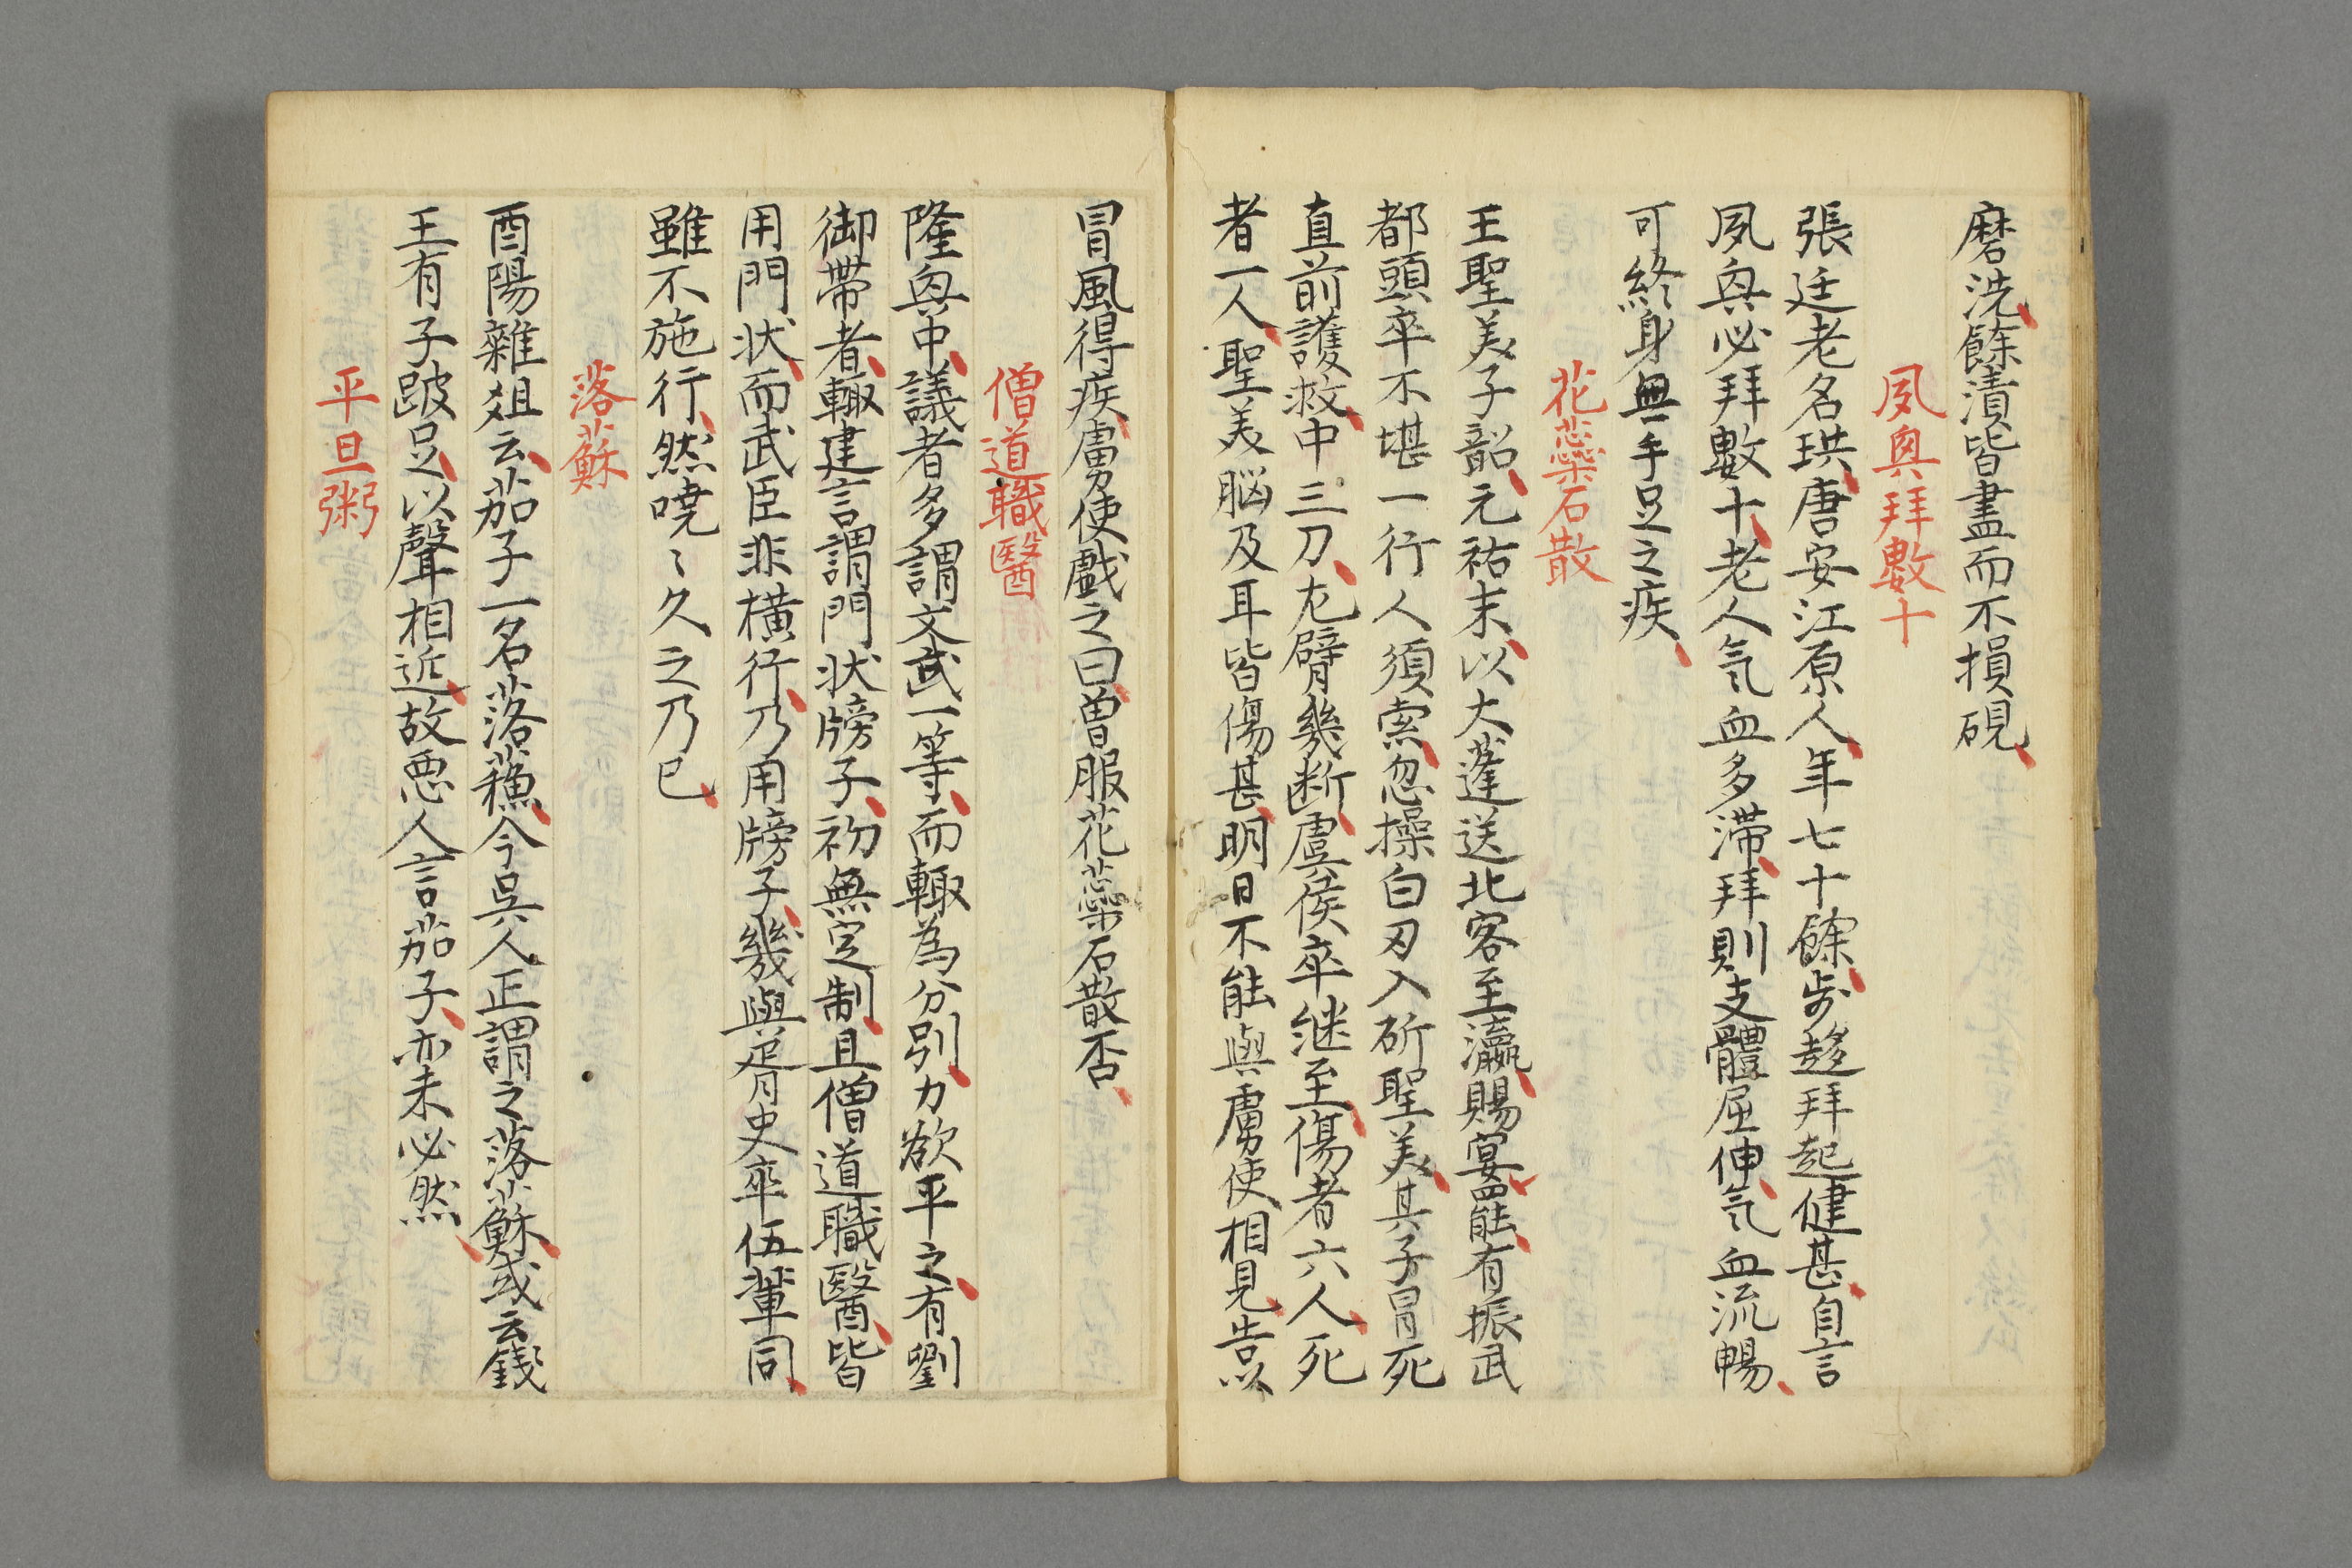 磨洗餘漬皆盡而不損硯
夙興拜數十
張廷老名珙唐安江原人年七十餘步趍拜起健甚自言
夙興必拜數十老人気血多滞拜則支體屈伸気血流暢
可終身無手足之疾
花蘂石散
王聖美子韶元祐末以大蓬送北客至瀛賜宴罷有振武
都頭卒不堪一行人須索忽操白刃入斫聖美其子冒死
直前護救中三刀左臂幾断虞侯卒継至傷者六人死
者一人聖美脳及耳皆傷甚明日不能與虜使相見告以
冒風得疾虜使戯之曰曽服花蘂石散否
僧道職醫
隆興中議者多謂文武一等而輙為分別力欲平之有劉
御帯者輙建言謂門状牓子初無定制且僧道職醫皆
用門状而武臣非横行乃用牓子幾與胥史卒伍輩同
雖不施行然嘵〻久之乃已
落蘇
酉陽雜爼云茄子一名落蘓今呉人正謂之落蘇或云錢
王有子跛足以聲相近故悪人言茄子亦未必然
平旦粥